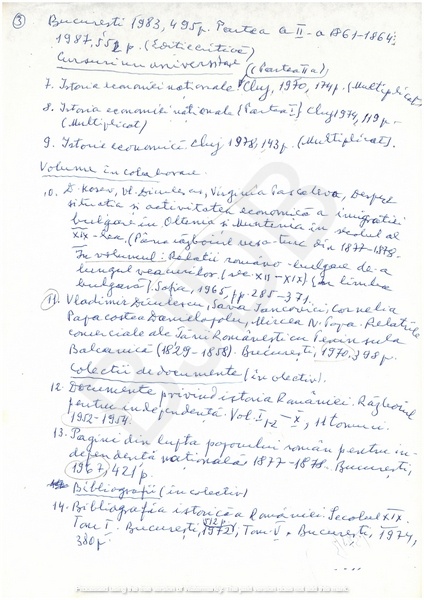 3
București 1983, 495 p. Partea a II-a 1861-1864;
1987, 552 p. (Ediție critică)
Cursuri universitare
(Partea II a),
7. Istoria economiei naționale Cluj, 1970, 174 p. (Multiplicat)
8. Istoria economiei naționale (Partea I) Cluj 1974, 119 p -
(Multiplicat)
9. Istorie economică. Cluj 1978, 143 p. (Multiplicat).
Volume în colaborare.
10. D. Kosev, Vl. Diculescu, Virginia Paskaleva, Despre
situația și activitatea economică a imigrației
bulgare în Oltenia și Muntenia în secolul al
XIX-lea (Până la războiul ruso-turc din 1877-1878.
În volumul: Relații romano-bulgare de-a
lungul veacurilor (sec XII-XIX) (în limba
bulgară). Sofia, 1965, pp. 285-371.
11. Vladimir Diculescu, Sava Iancovici, Cornelia
Papacostea Danielopolu, Mircea N. Popa. Relațiile
comerciale ale Țării Românești cu Peninsula
Balcanică (1829-1858). București, 1970, 398 p.
Colecții de documente (în colectiv).
12. Documente privind istoria României. Războiul
pentru independență. Vol. I, 1-2 - X, 11 tomuri.
1952-1954.
13. Pagini din lupta poporului român pentru in-
dependență națională 1877-1878. București,
1967, 421 p.
Bibliografii (în colectiv)
14. Bibliografia istorică a României. Secolul XIX.
Tom I. București, 1972, Tom V. București, 1974,
380 p.
....